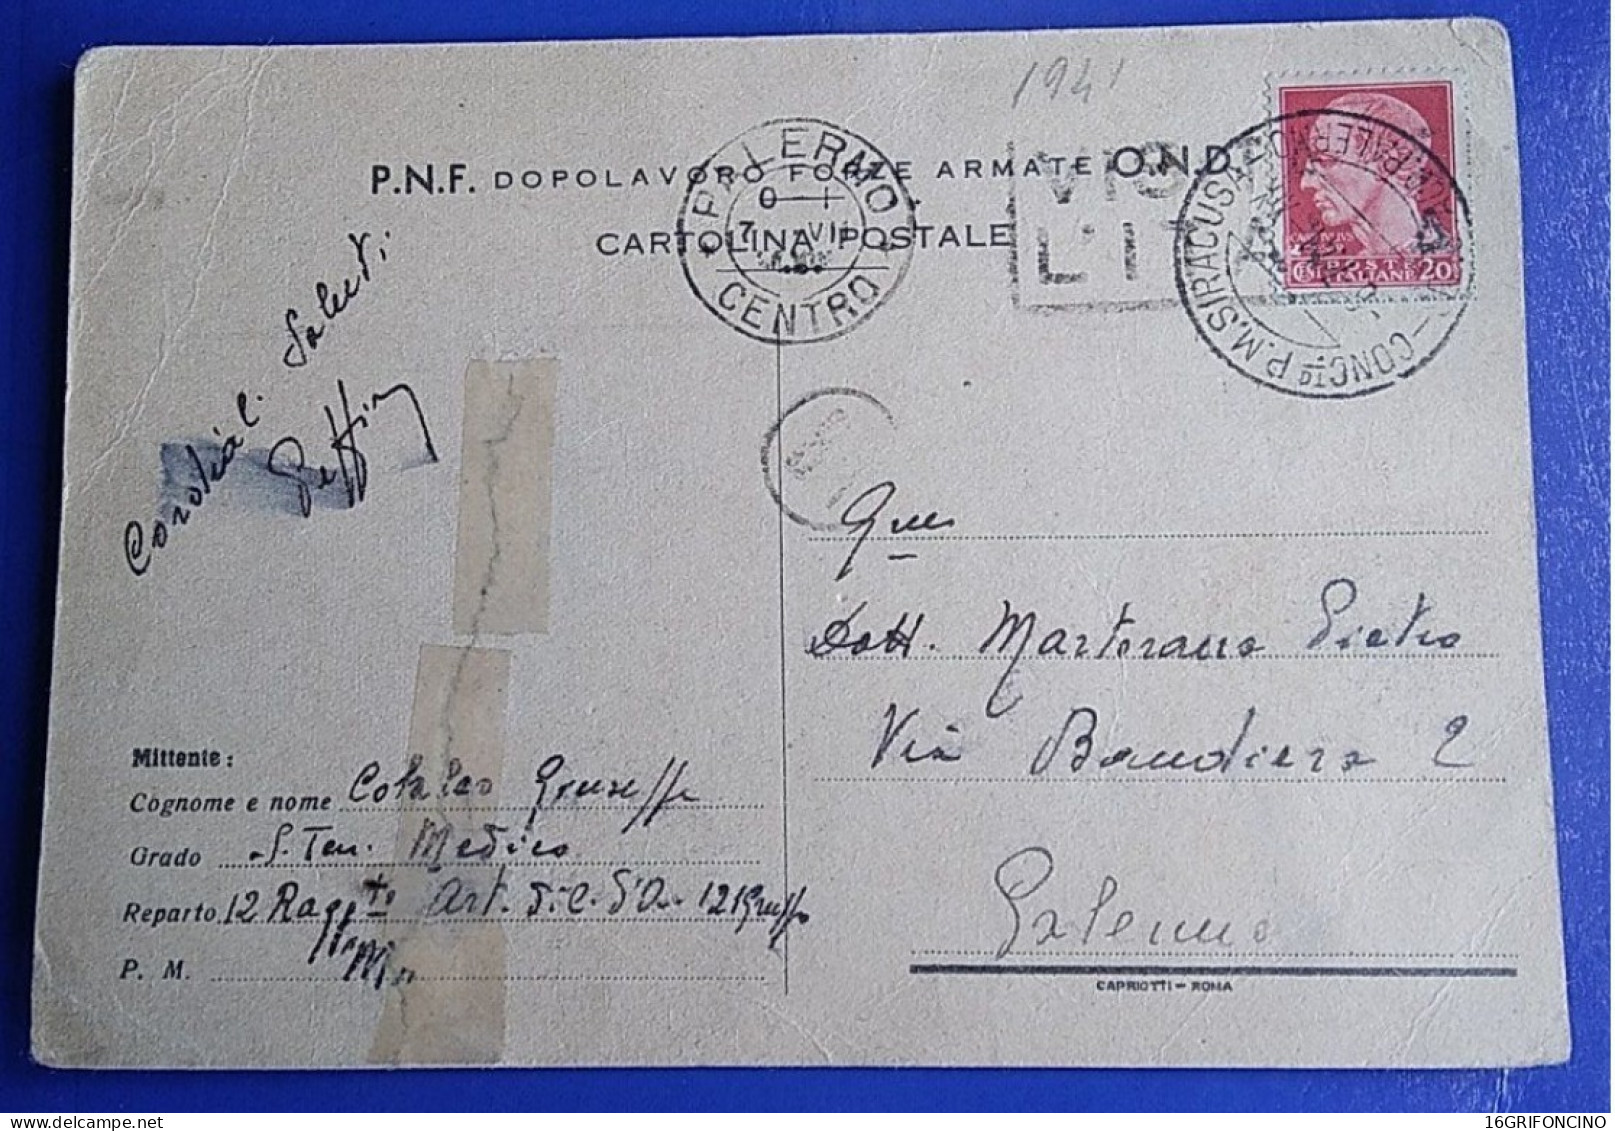 1941
P.N.F. DOPOLAVORO FORZE ARMATE O.N.D.
CARTOLINA POSTALE
PALERMO
7 VII
CENTRO
P.M. SIRACUSA
CONC.TO
POSTE ITALIANE
CENT 20
Cordiali Saluti
Dott. Martorana Pietro
Via Bandiera 2
Palermo
Mittente:
Cognome e nome Giuseppe
Grado S. Ten. Medico
Reparto 12 Ragg.to Art.
P. M.
CAPRIOTTI - ROMA
16GRIFONCINO